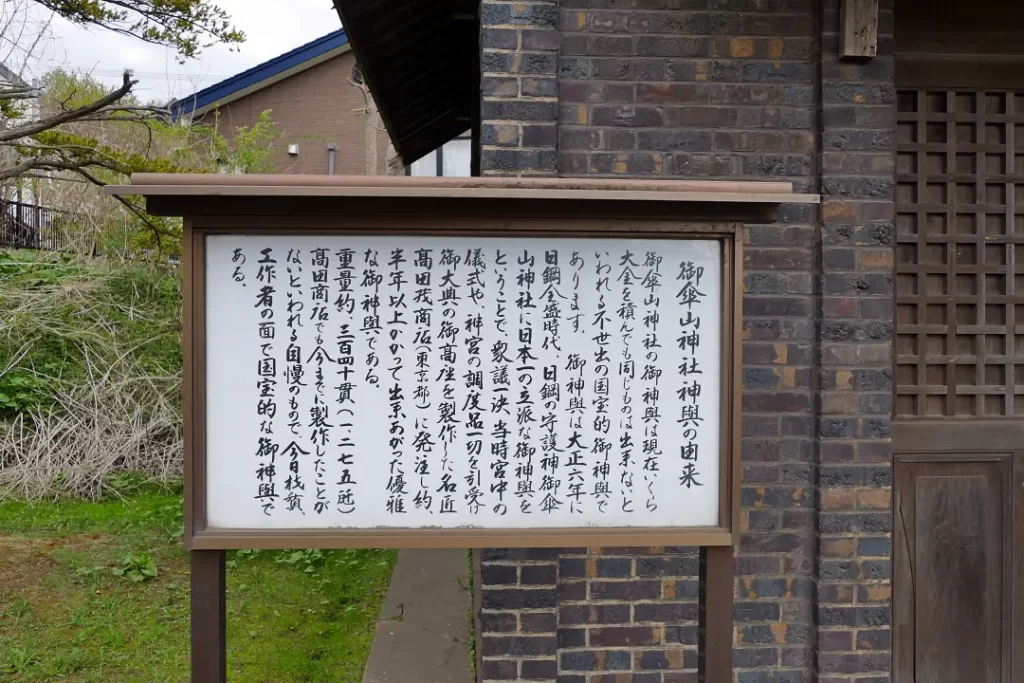 御傘山神社神輿の由来
御傘山神社の御神輿は現在いくら
大金を積んでも同じものは出来ないと
いわれる不世出の国宝的御神輿で
あります。 御神輿は大正六年に
日鋼全盛時代、日鋼の守護神御傘
山神社に日本一の立派な御神輿を
ということで、衆議一決、当時宮中の
儀式や、神宮の調度品一切を引受け
御大典の御高座を製作した名匠
髙田茂商店(東京都)に発注し約、
半年以上かかって出来あがった優雅
な御神輿である。
重量約、三百四十貫(一二七五瓩)
髙田商店でも今までに製作したことが
ないといわれる自慢のもので、今日技質、
工作者の面で国宝的な御神輿で
ある。